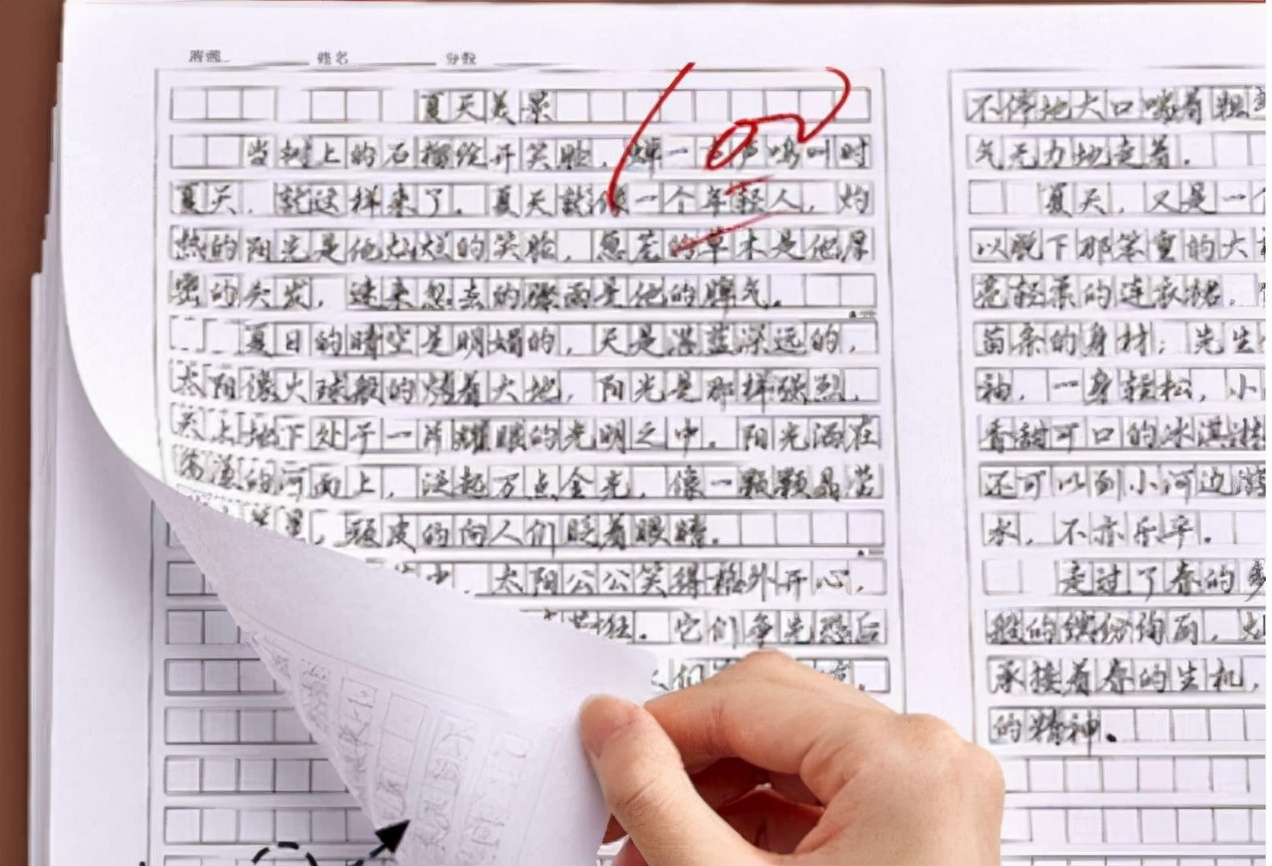 班级 姓名 分数
100
夏天美景
当树上的石榴绽开笑脸，蝉一声声鸣叫时
夏天，就这样来了。夏天就像一个年轻人，灼
热的阳光是他灿烂的笑脸，葱茏的草木是他厚
密的头发，速来忽去的骤雨是他的脾气。
夏日的晴空是明媚的，天是湛蓝深远的，
太阳像火球般的烤着大地，阳光是那样强烈，
天上地下处于一片耀眼的光明之中。阳光洒在
的河面上，泛起万点金光，像一颗颗晶莹
，顽皮的向人们眨着眼睛。
太阳公公笑得格外开心，
狂。它们争先恐后
们
不停地大口喘着粗
气无力地走着。
夏天，又是一个
以脱下那笨重的大
亮轻柔的连衣裙，
苗条的身材；先生
袖，一身轻松，小
香甜可口的冰淇淋
还可以到小河边
水，不亦乐乎。
走过了春的
般的缤纷绚丽，
承接着春的生机，
的精神。